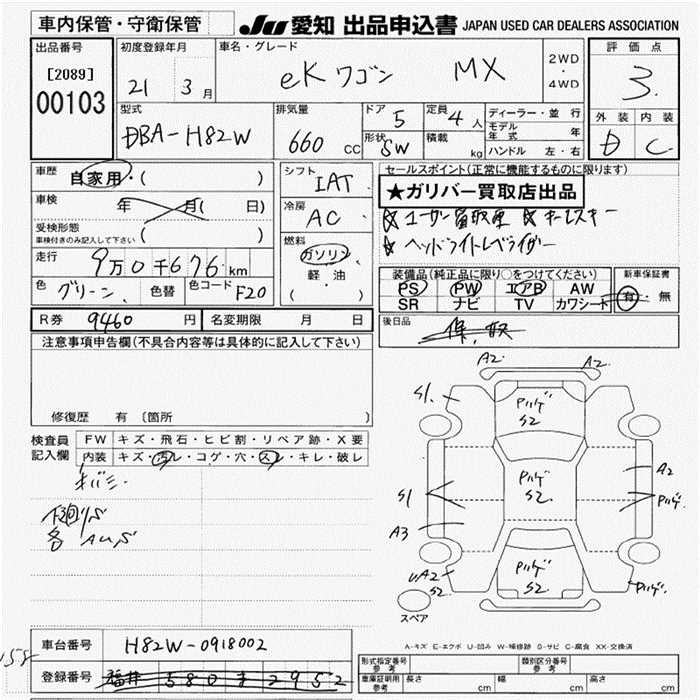 車内保管・守衛保管
JU 愛知 出品申込書 JAPAN USED CAR DEALERS ASSOCIATION
出品番号
[2089]
00103
初度登録年月
21 3 月
車名・グレード
eKワゴン MX
2WD
・
4WD
評価点
3
外装 内装
D C
型式
DBA-H82W
排気量
660 CC
ドア
5
形状
SW
定員
4 人
積載
kg
ディーラー・並行
モデル年式 年
ハンドル 左・右
車歴
自家用・( )
車検
年 月( 日)
受検形態
車検付きのみ記入して下さい ( )
走行
9万0千676 km
色 グリーン 色替 色コード F20
シフト
IAT
冷房
AC
燃料
ガソリン
軽・油
( )
セールスポイント(正常に機能するものに限ります)
★ガリバー買取店出品
☆ユーザー買取車 ☆キーレスキー
☆ヘッドライトレベライザー
装備品(純正品に限り○をつけてください)
PS PW エアB AW
SR ナビ TV カワシート
新車保証書
有・無
R券 9460 円 名変期限 月 日
後日品
保、取
注意事項申告欄(不具合内容等は具体的に記入して下さい)
修復歴 有 〔箇所 〕
検査員
記入欄
FW キズ・飛石・ヒビ割・リペア跡・X要
内装 キズ・汚レ・コゲ・穴・スレ・キレ・破レ
下廻りS
各 AUS
A2 A2
S1
Pハゲ
S2
A2
S1
Pハゲ
S2
Pハゲ
A3
UA2
S2
Pハゲ
S2
Pハゲ
スペア
A-キズ E-エクボ U-凹み W-補修跡 S-サビ C-腐食 XX-交換済
車台番号 H82W-0918002
158
登録番号 福井 580 ま 2952
型式指定番号
参考
類別区分番号
参考
車庫証明用
参考
長さ cm 幅 cm 高さ cm